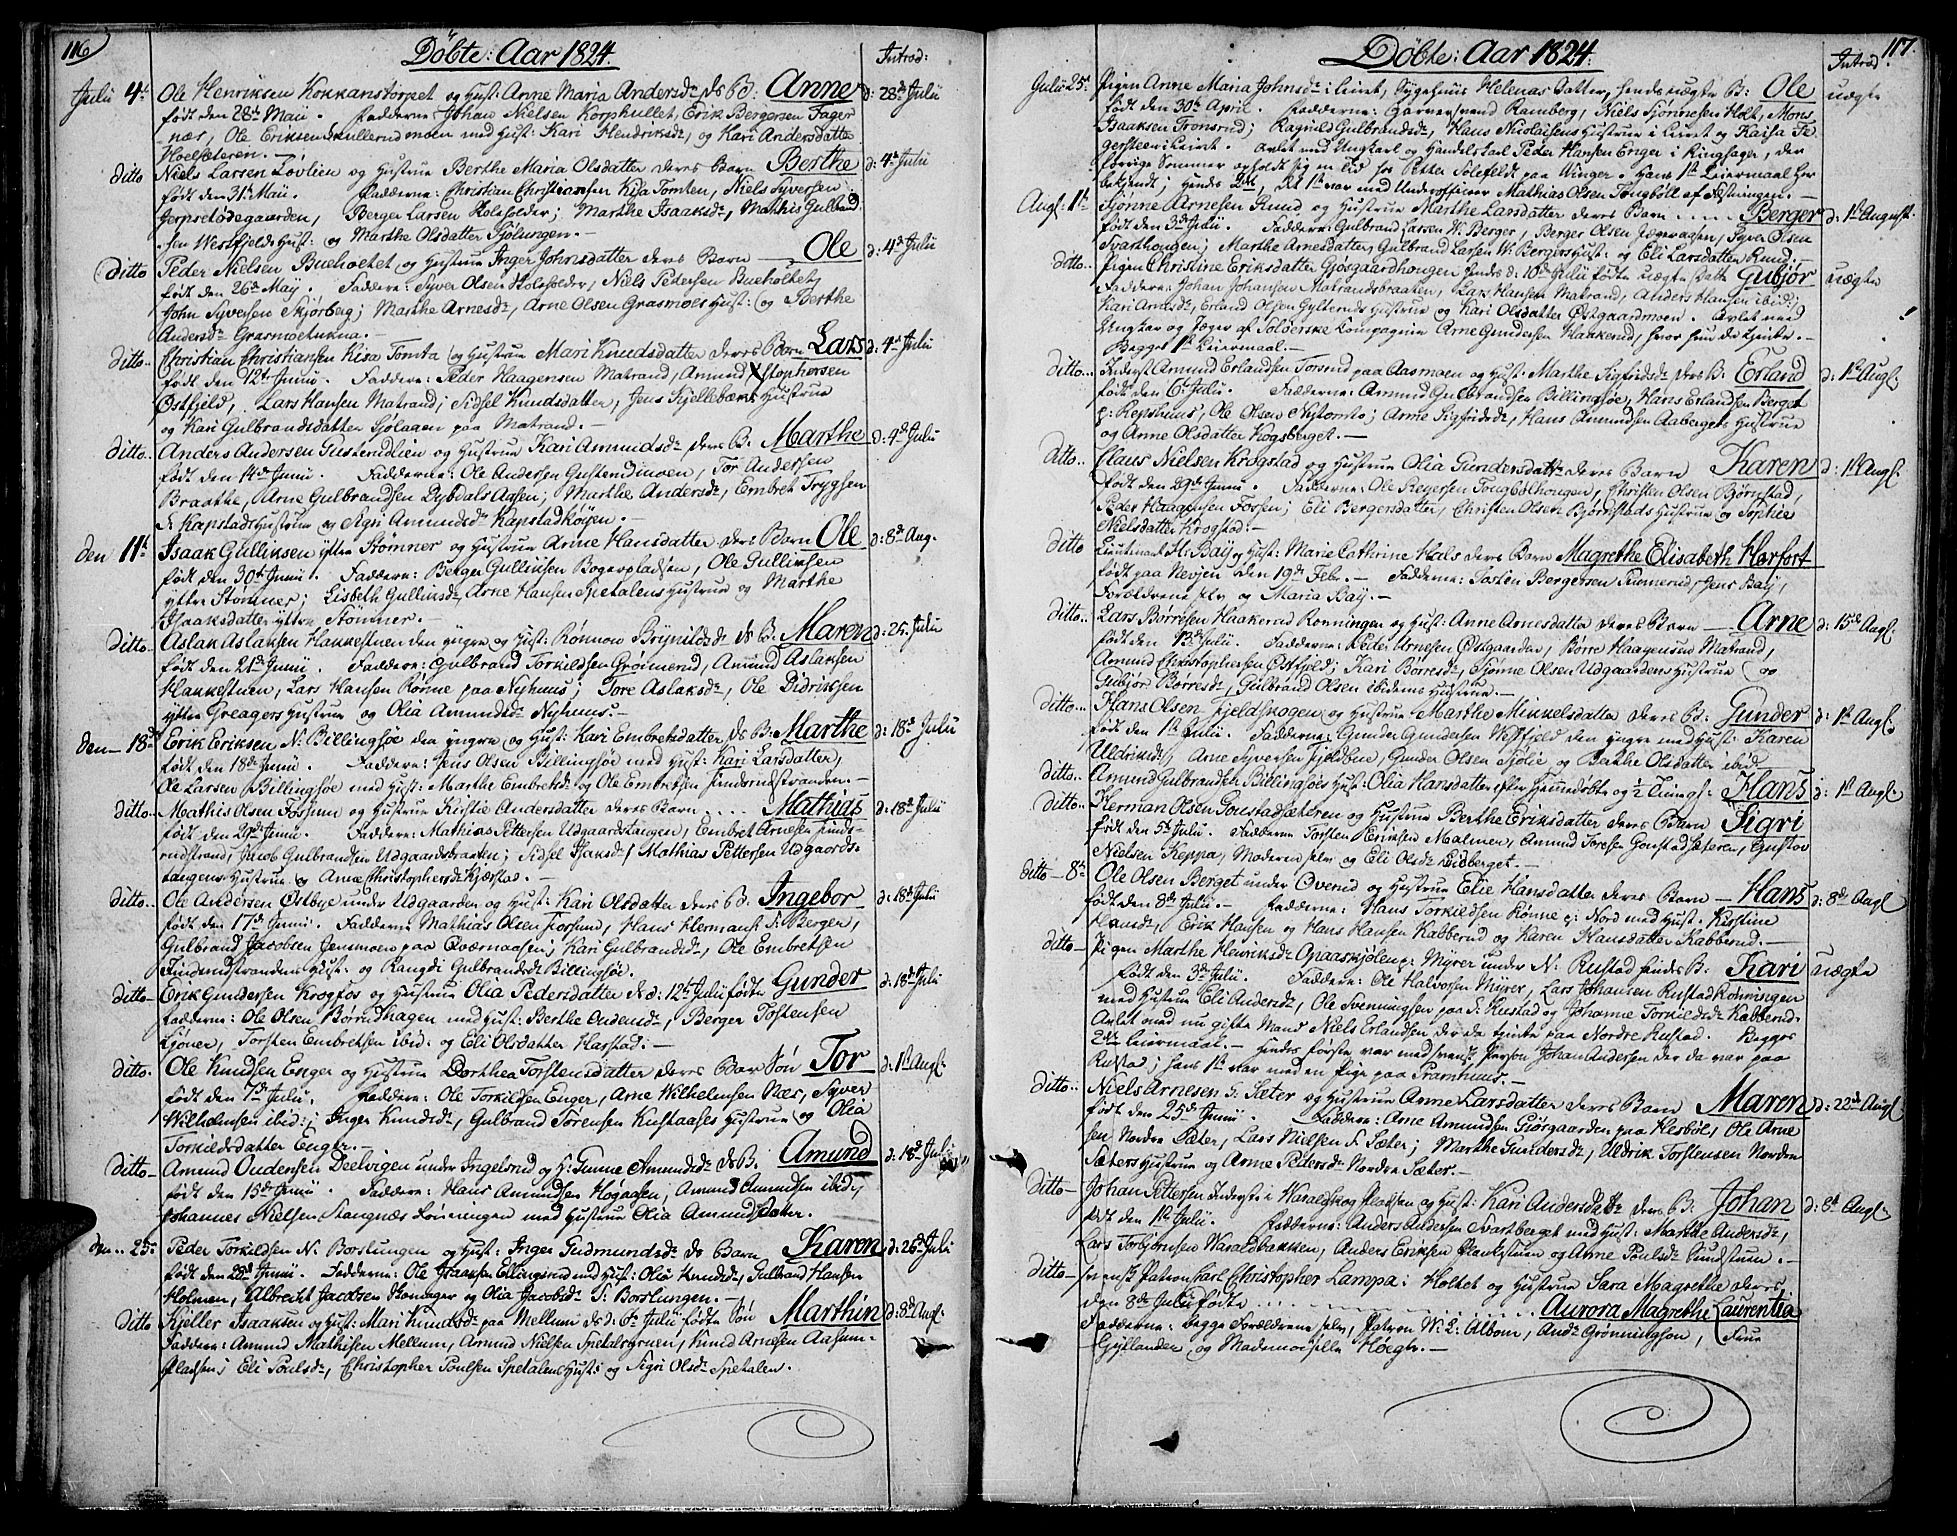 116
Döbte: Aar 1824.
Introd:
Julii 4de Ole Henriksen Kokkanstorpet og Hust: Anne Maria Andersd. ds B. Anne d: 28de Julii
født den 28de Maii. Faddere: Johan Nielsen Korphullet, Erik Bergersen Fager
nær, Ole Eriksen Skullerud moen med Hust: Kari Hendriksd., og Kari Andersdatter
Hoelseteren.
ditto Niels Larsen Løvlien og Hustrue Berthe Maria Olsdatter deres Barn Berthe d: 4de Julii
født den 31te Maii. Faddere: Christian Christiansen Kisa Tomten, Niels Syversen
Jerpsetødegaarden, Berger Larsen Holsfolder; Marthe Isaaksd., Mathis Gulbrand
sen Westfjelds Hust: og Marthe Olsdatter Sjølungen.
ditto Peder Nielsen Bueholtet og Hustrue Inger Johnsdatter deres Barn Ole d: 4de Julii
født den 26de May. Faddere: Syver Olsen Holsfolder, Niels Pedersen Bueholtet,
John Syversen Skjørbeg; Marthe Arnesd., Arne Olsen Grasmoes Hust: og Berthe
Andersd. Grasmoe
ditto Christian Christiansen Kisa Tomta og Hustrue Mari Knudsdatter deres Barn Lars d: 4de Julii
født den 12te Junii. Faddere: Peder Haagensen Matrand, Amund Xstophersen
Ostfjeld, Lars Hansen Matrand; Sidsel Knudsdatter, Jens Kjellebæks Hustrue
og Kari Gulbrandsdatter Sjølagen paa Matrand.
ditto Anders Andersen Gustendlien og Hustrue Kari Amundsd. deres B. Marthe d: 4de Julii
født den 14de Junii. Faddere: Ole Andersen Gustendmoen, Tor Andersen
Braathe, Arne Gulbrandsen Dybdals Aasen; Marthe Andersd., Embret Trygsen
Kapstads Hustrue og Sigri Amundsd. Kapstadkøyen.
den 11te Isaak Gulliksen yttre Stømner og Hustrue Anne Hansdatter deres Barn Ole d: 8de Aug.
født den 30te Junii. Faddere: Berger Gullinsen Bogerpladsen, Ole Gullinsen
yttre Stømner; Lisbeth Gullinsd., Arne Hansen Spetalens Hustrue og Marthe
Isaaksdatter yttre Stømner.
ditto Aslak Aslaksen Hakkestuen den yngre og Hust: Rønnow Brynildsd. ds B. Maren d: 25. Julii
født den 21de Junii. Faddere: Gulbrand Torkildsen Grøinerud, Amund Aslaksen
Hakkestuen, Lars Hansen Rønne paa Nyhuus; Tore Aslaksd., Ole Didriksen
yttre Greagers Hustrue og Olia Amundsd. Nyhuus.
den 18de Erik Eriksen N. Billingsøe den yngre og Hust: Kari Embretsdatter ds B. Marthe d: 18de Julii
født den 18de Junii. Faddere: Jens Olsen Billingsøe med Hust: Kari Larsdatter,
Ole Larsen Billingsøe med Hust: Marthe Embretsd. og Ole Embretsen Finderudstranden.
ditto Mathis Olsen Forsum og Hustrue Kirstie Andersdatter deres Barn Mathias d: 18de Julii
født den 29de Junii. Faddere: Mathias Pettersen Udgaardstangen, Embret Arnesen Finde-
rudstrand, Jacob Gulbrandsen Udgaardsbraaten; Sidsel Isaksd. Mathias Pettersen Udgaards-
tangens Hustrue og Anne Christophersd. Kjerstad.
ditto Ole Andersen Østbye under Udgaarden og Hust: Kari Olsdatter deres B. Ingebor d: 18de Julii
født den 17de Junii. Faddere: Mathias Olsen Forsund, Hans Hermans. S. Berger,
Gulbrand Jacobsen Jensmoen paa Qværnaasen; Kari Gulbrandsd., Ole Embretsen
Finderudstrandens Hust: og Rangdi Gulbrandsd. Billingsøe.
ditto Erik Gundersen Krogfos og Hustrue Olia Pedersdatter ds d: 12te Julii fødte Gunder d: 18de Julii
Faddere: Ole Olsen Børrudhagen med Hust: Berthe Oudensd., Berger Tostensen
Ljøner, Torsten Embretsen ibid: og Eli Olsdatter Harstad.
ditto Ole Knudsen Enger og Hustrue Dorthea Torstensdatter deres Barn Søn Tor d: 1ste Augl:
født den 7de Julii. Faddere: Ole Torkildsen Enger, Arne Wilhelmsen Næs, Syver
Wilhelmsen ibid:; Inger Knudsd., Gulbrand Torensen Kustaases Hustrue og Olia
Torkildsdatter Enger.
ditto Amund Oudensen Deelvigen under Ingelsrud og H: Gunne Amundsd. ds B. Amund d: 18de Julii
født den 15de Junii. Faddere: Hans Amundsen Høgaasen, Amund Amundsen ibid;
Johannes Nielsen Stangnæs Rønningen med Hustrue Olia Amundsdatter.
den 25de Peder Torkildsen N. Borslungen og Hust: Inger Gudmundsd. ds Barn Karen d: 26de Julii
født den 28de Junii. Faddere: Ole Isaaksen Ellingsrud med Hust: Oliö Knudsd., Gulbrand Hansen
Holmen, Albrecht Jacobsen Skonager og Olia Jacobsd. S. Borslungen.
ditto Kjeller Isaaksen og Hust: Mari Knudsd. paa Mellum ds d: 6te Julii fødte Søn Marthin d: 8de Augl:
Faddere: Amund Mathisen Mellum, Amund Nielsen Spetalsgruen, Knud Arnesen Aasum-
pladsen; Eli Poulsd., Christopher Poulsen Spetalens Hust: og Sigri Olsd. Spetalen.
117
Döbte: Aar 1824.
Introd:
Julii 25de Pigen Anne Maria Johnsd. i Leiret, Sygehuus Helenas Datter, hendes uægte B: Ole uægte
født den 30te April. Faddere: Garversvend Ramberg, Niels Sjønnesen Holt, Mons
Isaaksen Tronsrud; Ragnild Gulbrandsd., Hans Nicolaisens Hustrue i Leiret og Kaisa Fe-
gersteen i Leiret. Avlet med Ungkarl og Handelskarl Peder Hansen Enger i Ringsager, der
forrige Sommer opholdt sig en tid hos Petter Solefeldt paa Winger. Hans 1ste Leiermaal her
bekjendt, hendes 2det, det 1ste var med Underofficer Mathias Olsen Tongböll af Fæstningen.
Augl: 1ste Sjønne Arnesen Rund og Hustrue Marthe Larsdatter deres Barn Berger d: 1ste August.
født den 3de Julii. Faddere: Gulbrand Larsen W. Berger, Berger Olsen Jægeraasen, Syver Olsen
Svarthougen; Marthe Arnesdatter, Gulbrand Larsen W. Bergers Hust: og Eli Larsdatter Rund.
ditto Pigen Christine Eriksdatter Gjøsgaardhougen hendes d: 10de Julii fødte uægte Datt. Gubjör uægte
Faddere: Johan Johansen Matrandsbraaten, Lars Hansen Matrand, Anders Hansen ibid;
Kari Arnesd., Erland Olsen Gylteruds Hustrue og Kari Olsdatter Østgaardmoen. Avlet med
Ungkar og Jæger af Soløerske Compagnie Arne Gundersen Haakerud, hvor hun da tjente.
Begges 1ste Leiermaal.
ditto Inderst Amund Erlandsen Torsrud paa Aasmoen og Hust: Marthe Sigfridsd. deres B. Erland d: 1ste Augl:
født den 6te Julii. Faddere: Amund Gulbrandsen Billingsøe, Hans Erlandsen Berget
p: Repshuus, Ole Olsen Nystomta; Arne Sigfridsd., Hans Amundsen Aabergets Hustrue
og Anne Olsdatter Kogsberget.
ditto Claus Nielsen Krogstad og Hustrue Olia Gundersdatter deres Barn Karen d: 1ste Augl:
født den 29de Junii. Faddere: Ole Reyersen Tongbölhougen, Christen Olsen Bjørnstad,
Peder Haagensen Forsen; Eli Bergersdatter, Christen Olsen Bjørnstads Hustrue og Sophie
Nielsdatter Krogstad.
ditto Lieutenant H: Bay og Hust: Marie Cathrine Hals deres Barn Magrethe Elisabeth Herfort
født paa Nevjen den 19de Febr. Faddere: Tosten Bergersen Stomerud, Jens Bay,
Forældrene selv og Maria Bay.
ditto Lars Børresen Haakerud Rønningen og Hust: Anne Arnesdatter deres Barn Arne d: 15de Augl:
født den 13de Julii. Faddere: Peder Arnesen Østgaarden, Børre Haagensen Matrand,
Amund Christophersen Østfjeld; Kari Børresd., Sjønne Olsen Udgaardens Hustrue og
Gubjør Børresd., Gulbrand Olsen ibidems Hustrue.
ditto Hans Olsen Fjeldskogen og Hustrue Marthe Mikkelsdatter deres B: Gunder d: 1ste Augl:
født den 1ste Julii. Faddere: Gunder Gundersen Vestfjeld den yngre med Hust: Karen
Uldriksd., Arne Syversen Fjeldbøe, Gunder Olsen Sjölie og Berthe Olsdatter ibid
ditto Amund Gulbrandsen Billingsøes Hust: Olia Hansdatter efter Huusdøbte og 1/2 Hans d: 1ste Augl:
ditto Herman Olsen Goustadsæteren og Hustrue Berthe Eriksdatter deres Barn Sigri
født den 5te Julii. Faddere Torsten Eriksen Malmer, Amund Toresen Goustadsæteren, Gustav
Nielsen Keppa, Moderen selv og Eli Olsd. Eidberget.
ditto 8de Ole Olsen Berget under Overud og Hustrue Elie Hansdatter deres Barn Hans d: 8de Augl
født den 8de Julii. Faddere: Hans Torkildsen Rønne p: Nord med Hust. Kirstine
Hansd., Erik Hansen og Hans Hansen Kabberud og Karen Hansdatter Kabberud.
ditto Pigen Marthe Henriksd. Opaaskjølen p: Myrer under N: Rustad hendes B: Kari uægte
født den 3de Julii. Faddere: Ole Halvorsen Myrer, Lars Johansen Rustad Rønningen
med Hustrue Eli Andersd., Ole Svenningsen paa S: Rustad og Johanne Torkildsd. Kabberud.
Avlet med nu gifte Mand Niels Erlandsen der da tjente paa Nordre Rustad. Begges
2det Leiermaal. Hendes første var med svensk Person Johan Andersen der da var paa
Rustad; hans 1ste var med en Pige paa Pramhuus.
ditto Niels Arnesen S: Sæter og Hustrue Anne Larsdatter deres Barn Maren d: 22de Augl
født den 25de Junii. Faddere: Arne Amundsen Gjørgaarden paa Hesböl, Ole Arne
sen Nordre Sæter, Lars Nielsen S. Sæter; Marthe Gundersd., Uldrik Torstensen Nordre
Sæters Hustrue og Arne Pedersd. Nordre Sæter.
ditto Johan Pettersen Inderste i Waraldskog Pladsen og Hust: Kari Andersdatter deres B. Johan d: 8de Augl:
født den 1ste Julii. Faddere: Anders Andersen Svartberget med Hust: Marthe Andersd.,
Lars Torbjørnsen Waraldbakken, Anders Eriksen og Anne Poulsd. Sundstuen.
ditto svensk Patron Carl Christopher Lampa i Holtet og Hustrue Sara Magrethe deres
den 8de Julii fødte Aurora Magrethe Laurentia
Faddere: begge Forældrene selv, Patron W: L: Albom, And. Grønningson, Frue
Gyllander, og Mademoiselle Høegh.